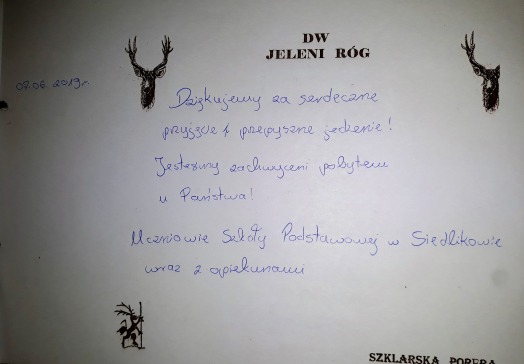 DW
JELENI RÓG
07.06.2019r.
Dziękujemy za serdeczne
przyjęcie i przepyszne jedzenie!
Jesteśmy zachwyceni pobytem
u Państwa!
Uczniowie Szkoły Podstawowej w Siedlikowie
wraz z opiekunami
SZKLARSKA PORĘBA